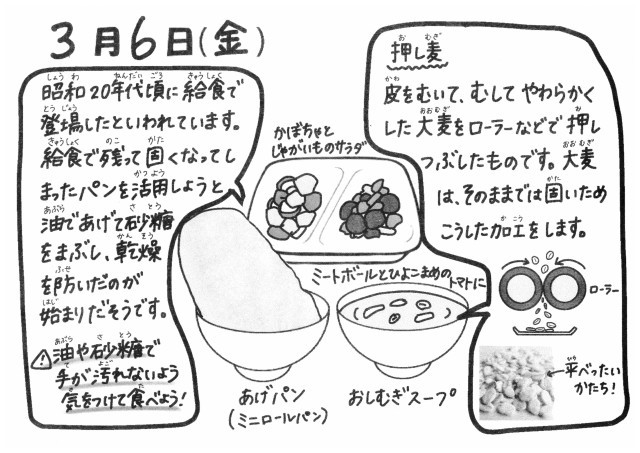 3月6日(金)
昭和20年代頃に給食で
登場したといわれています。
給食で残って固くなってし
まったパンを活用しようと
油であげて砂糖
をまぶし、乾燥
を防いだのが
始まりだそうです。
油や砂糖で
手が汚れないよう
気をつけて食べよう!
かぼちゃと
じゃがいものサラダ
ミートボールとひよこまめのトマトに
あげパン
(ミニロールパン)
おしむぎスープ
押し麦
皮をむいて、むしてやわらかく
した大麦をローラーなどで押し
つぶしたものです。大麦
は、そのままでは固いため
こうした加工をします。
ローラー
←平べったい
かたち!